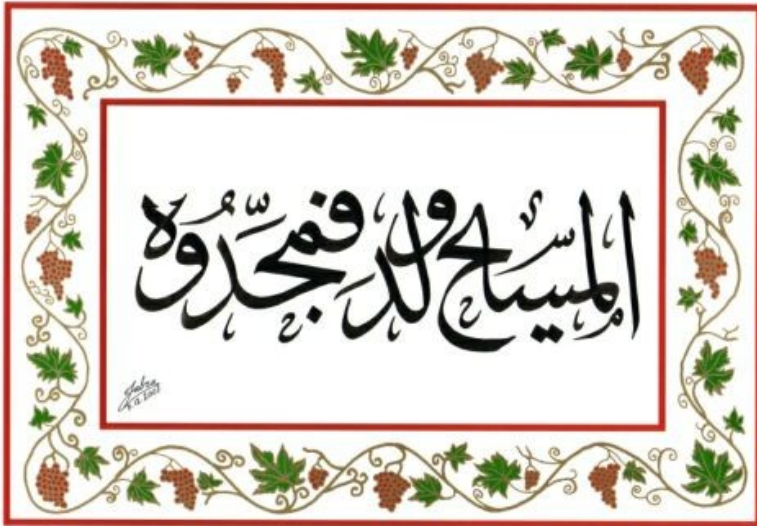 المسيح ولد فمجّدُوه